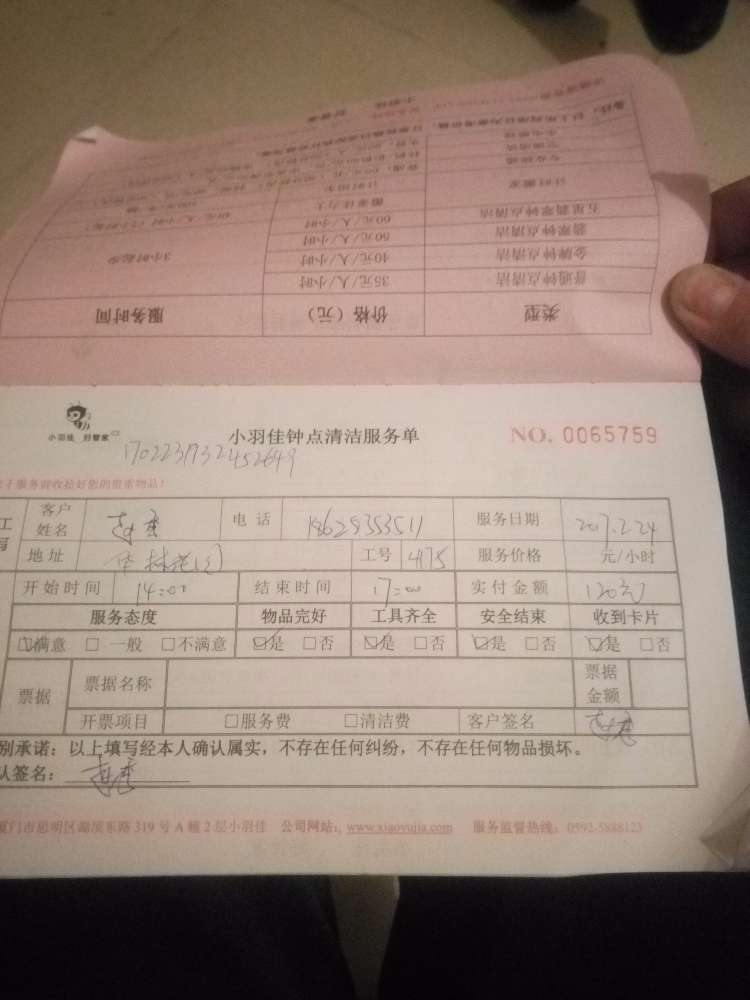 类型 价格（元） 服务时间
普通钟点清洁 35元/人/小时 3小时起步
金牌钟点清洁 40元/人/小时
翡翠钟点清洁 50元/人/小时
五星翡翠钟点清洁 60元/人/小时
计时搬家 搬家佳力士
小羽佳 好管家
小羽佳钟点清洁服务单
NO. 0065759
1702231732452649
于服务前收拾好您的贵重物品！
客户姓名 电话 18629353511 服务日期 2017.2.24
地址 华林花园 工号 4175 服务价格 元/小时
开始时间 14:00 结束时间 17:00 实付金额 120元
服务态度 物品完好 工具齐全 安全结束 收到卡片
☑满意 □一般 □不满意 ☑是 □否 ☑是 □否 ☑是 □否 ☑是 □否
票据 票据名称 票据金额
开票项目 □服务费 □清洁费 客户签名
别承诺：以上填写经本人确认属实，不存在任何纠纷，不存在任何物品损坏。
认签名：
厦门市思明区湖滨东路 319 号 A 幢 2 层小羽佳 公司网站：www.xiaoyujia.com 服务监督热线：0592-5888123